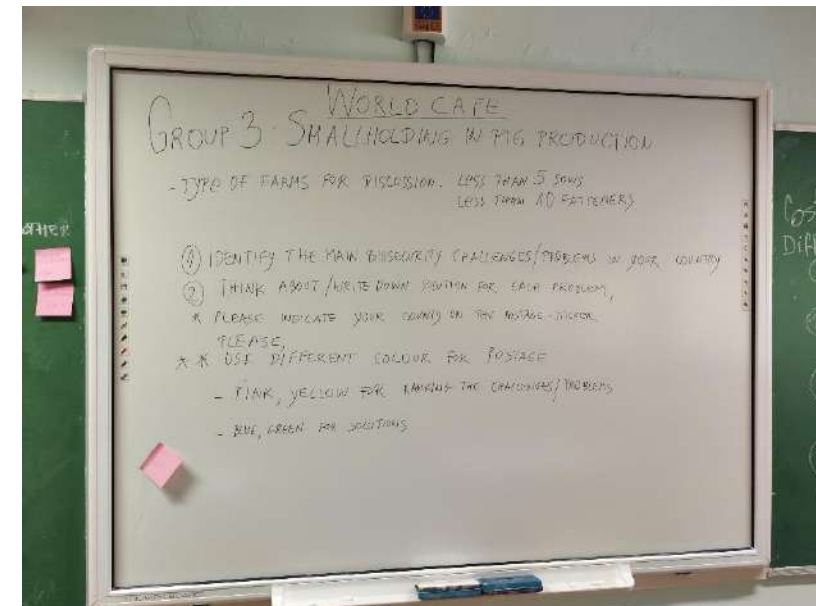 WORLD CAFE
GROUP 3. SMALLHOLDING IN PIG PRODUCTION
- TYPE OF FARMS FOR DISCUSSION. LESS THAN 5 SOWS
LESS THAN 10 FATTENERS
① IDENTIFY THE MAIN BIOSECURITY CHALLENGES/PROBLEMS IN YOUR COUNTRY
② THINK ABOUT/WRITE DOWN SOLUTION FOR EACH PROBLEM,
* PLEASE INDICATE YOUR COUNTY ON THE POSTAGE-STICKER
PLEASE,
* * USE DIFFERENT COLOUR FOR POSTAGE
- PINK, YELLOW FOR RANKING THE CHALLENGES/PROBLEMS
- BLUE, GREEN FOR SOLUTIONS
OTHER